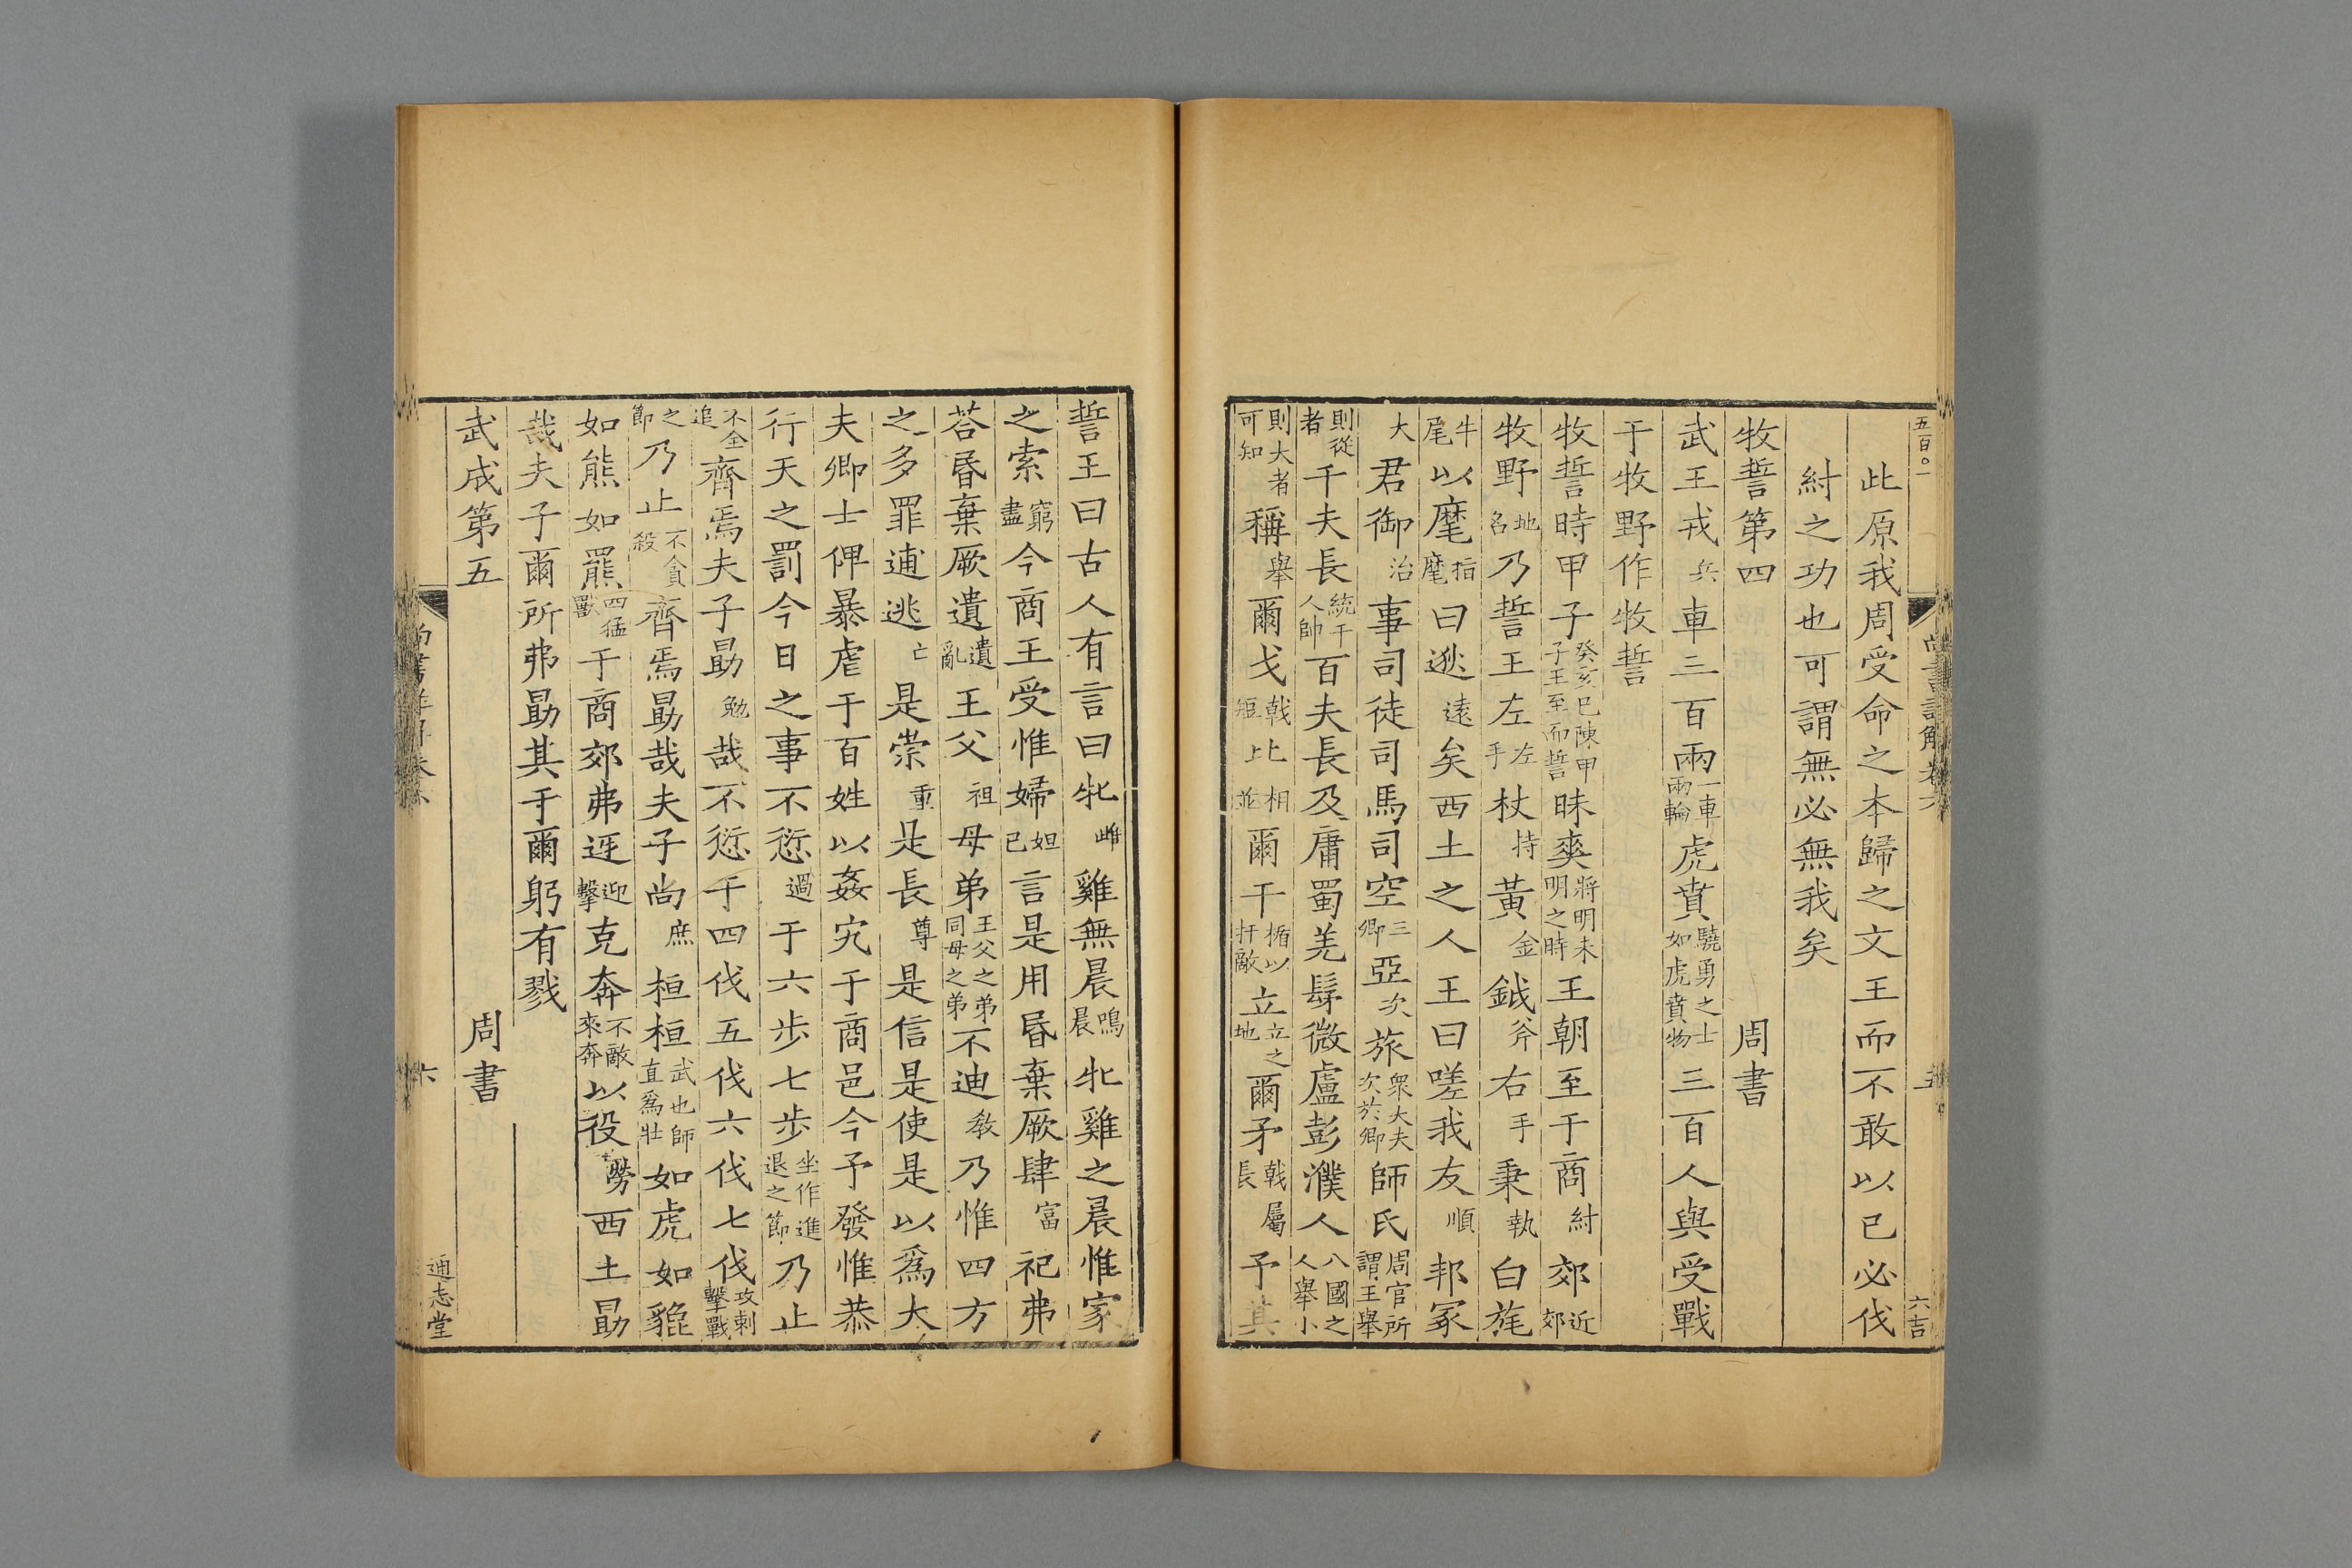 五百〇一
尚書詳解卷六
五
六吉
此原我周受命之本歸之文王而不敢以已必伐
紂之功也可謂無必無我矣
牧誓第四 周書
武王戎兵車三百兩一車兩輪虎賁驍勇之士如虎賁物三百人與受戰
于牧野作牧誓
牧誓時甲子癸亥已陳甲子王至而誓昧爽將明未明之時王朝至于商紂郊近郊
牧野地名乃誓王左左手杖持黃金鉞斧右手秉執白旄
牛尾以麾指麾曰逖遠矣西土之人王曰嗟我友順邦冢
大君御治事司徒司馬司空三卿亞次旅衆大夫次於卿師氏周官所謂王舉
則從者千夫長統千人帥百夫長及庸蜀羌髳微盧彭濮人八國之人舉小
則大者可知稱舉爾戈戟短比相並爾干楯以扞敵立立之地爾矛戟長屬予其
誓王曰古人有言曰牝雌雞無晨鳴晨牝雞之晨惟家
之索窮盡今商王受惟婦妲己言是用昬棄厥肆富祀弗
荅昬棄厥遺遺亂王父祖母弟王父之弟同母之弟不迪教乃惟四方
之多罪逋逃亡是崇重是長尊是信是使是以爲大
夫卿士俾暴虐于百姓以姦宄于商邑今予發惟恭
行天之罰今日之事不愆過于六步七步坐作進退之節乃止
不全追齊焉夫子勖勉哉不愆于四伐五伐六伐七伐攻刺擊戰
之節乃止不貪殺齊焉勖哉夫子尚庶桓桓武也師直爲壯如虎如貔
如熊如羆四猛獸于商郊弗迓迎擊克奔不敵來奔以役勞西土勖
哉夫子爾所弗勖其于爾躬有戮
武成第五 周書
尚書詳解卷六
六
通志堂